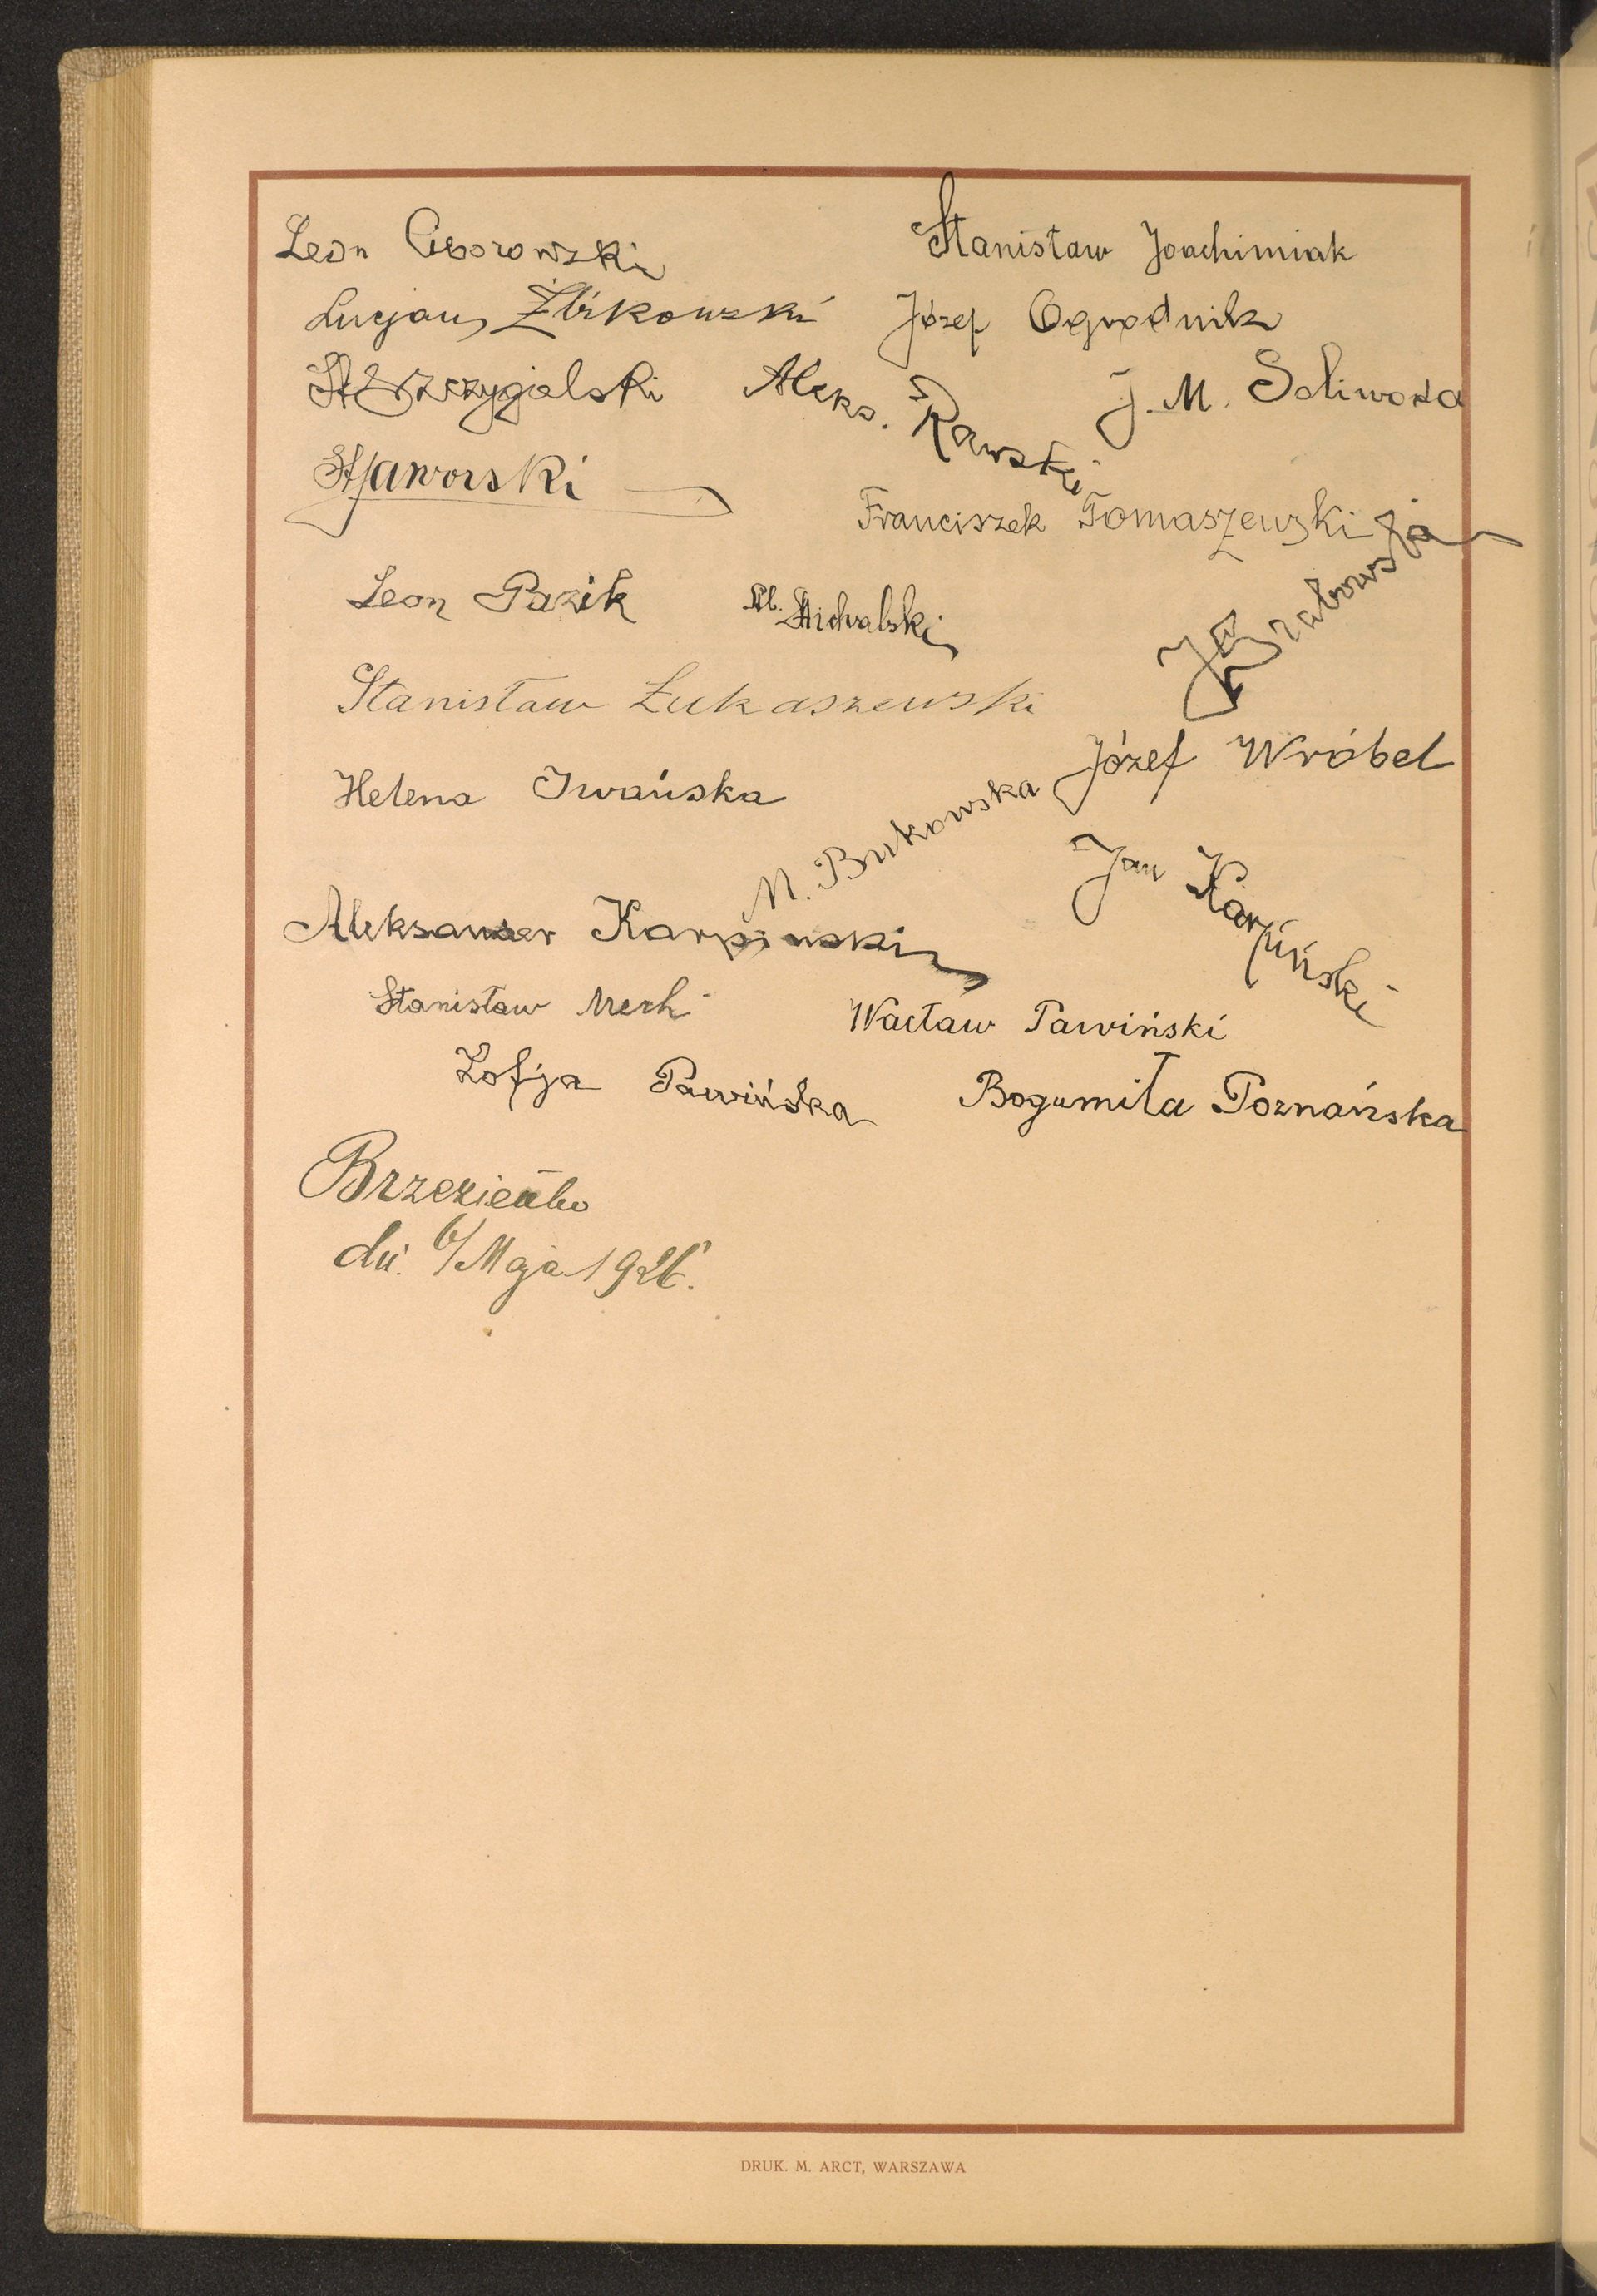 Leon Ciborowski Stanisław Joachimiak
Lucjan Żbikowski Józef Ogrodnik
St. Aleks. Rawski J. M. Soliwoda
St Jaworski
Franciszek Tomaszewski
Leon Pazik Michalski
Grabowska
Stanisław Łukaszewski
Józef Wróbel
Helena Iwańska
M. Bukowska
Jan Karpiński
Aleksander Karpinski
Stanisław Merk
Wacław Pawiński
Zofja Pawińska Bogumiła Poznańska
Brzezienko
dn. 6/Maja 1926.
DRUK. M. ARCT, WARSZAWA